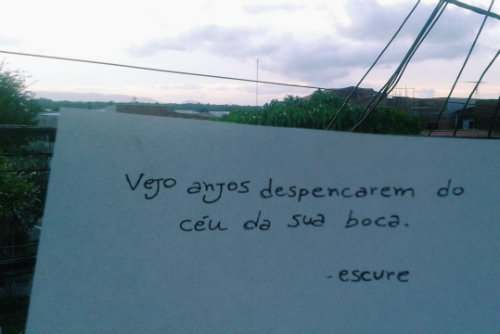 Vejo anjos despencarem do
céu da sua boca.
- escure